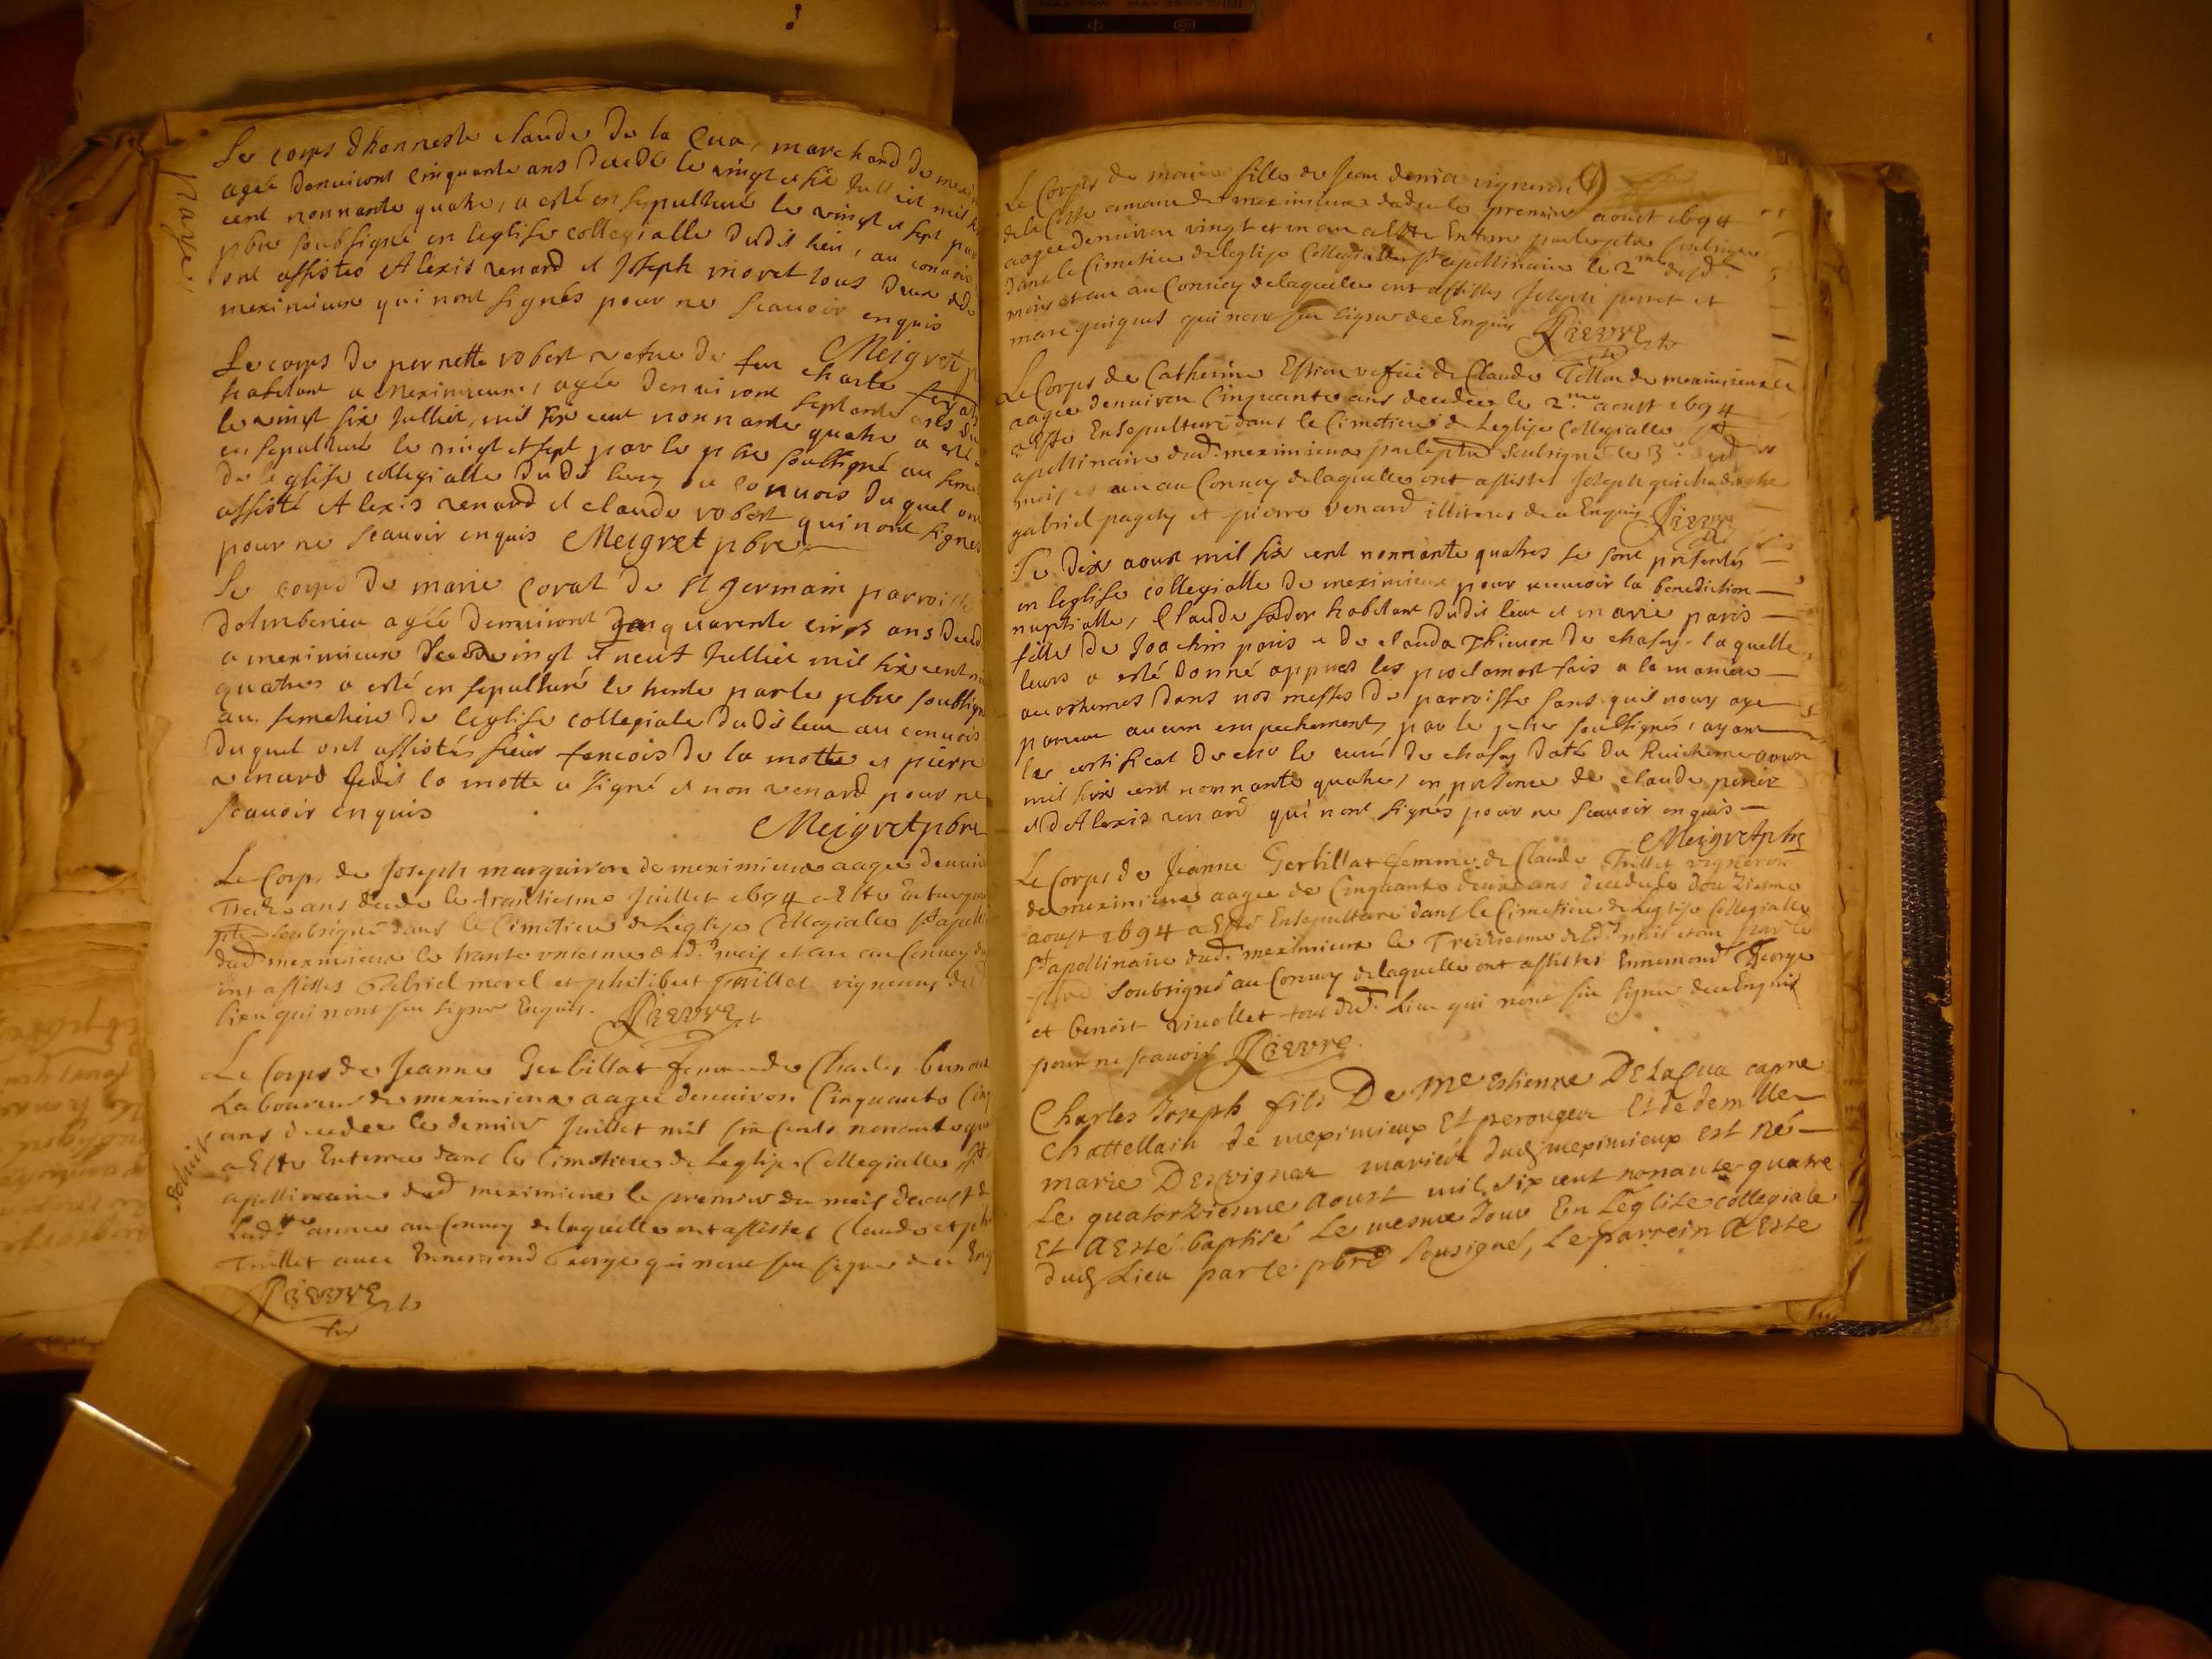 Le corps dhonneste claude de la Cua, marchand de mexi
agée denviront cinquante ans decede le vingt et six Julliet mil
cent nonnante quatre, a esté en sepulture le vingt et sept par
pbre soubsigné en leglise collegialle dudit lieu, au convois
ont assistes Alexis renard et Joseph moret tous deux de
meximieux qui nont signés pour ne scauoir enquis
Meigret p
Le corps de pernette robert vefue de feu charle
habitant a Meximieux, agée denuiront septante ans
le vingt six Julliet, mil six cent nonnante quatre a esté
en sepulture le vingt et sept par le pbre soussigné au sime
de leglise collegialle dudit lieu, au conuois duquel ont
assisté Alexis renard et claude robert qui nont signes
pour ne scauoir enquis Meigret pbre
Le corps de marie corat de st germain parroisse
dambenieu agée denuiront quarente cinq ans deced
a meximieux le vingt et neuf Julliet mil six cent
quatres a esté en sepulturé le trente par le pbre soubsign
au semetiere de leglise collegiale dudit lieu au conuois
duquel ont assistés sieur fencois de la motte et pierre
renard ledit la motte a signé et non renard pour ne
scauoir enquis
Meigret pbre
Le Corps de Joseph marguiron de meximieux aagee denui
Treize ans decede le trantiesme Juillet 1694 a Este Enterre
pbre soubsigné dans le Cimetiere de Leglise Collegialle st apoll
dud meximieux le trante vniesme dud. mois et an au Conuoy
ont assistes Gabriel morel et philibert Trillet vignerons du
lieu qui nont seu signer Enquis. Rieuvre
Le Corps de Jeanne Gerbillat femme de Charles
Laboureur de meximieux aagee denuiron Cinquante Cinq
ans decedee le dernier Juillet mil six cents nonante
a Este Enterree dans le Cimetiere de Leglise Collegialle st
apollinaire dud meximieux le premier du mois daoust de
Lad. annee au Conuoy de laquelle ont assistes Claude et ph
Trillet auec Ennemond George qui nont seu signer de ce Enq
Rieuvre
Le Corps de marie fille de Jean denia vigneron
de la Coste amane de meximieux decedee le premier aoust 1694
aagee denuiron vingt et un an a Este Enterree par le pbre soubsigne
dans le Cimetiere de leglise Collegialle st apollinaire le 2me dud.
mois et an au Conuoy de laquelle ont assistes Joseph perret et
marc guigues qui nont seu signer de ce Enquis Rieuvre
Le Corps de Catherine Estieu vefue de Claude Tillon de meximieux
aagee denuiron Cinquante ans decedee le 2me aoust 1694
a Este Ensepulturé dans le Cimetiere de Leglise Collegialle st
apollinaire dud. meximieux par le pbre soubsigné le 3e dud
mois et an au Conuoy de laquelle ont assistes Joseph
gabriel pagety et pierre renard illiteres de ce Enquis Rieuvre
Le dix aoust mil six cent nonnante quatres se sont presentés
en leglise collegialle de meximieux pour receuoir la benediction
nuptialle, Claude fador habitant dudit lieu et marie paris
fille de Joachim paris et de clauda Thieuon de chasey laquelle
leurs a esté donné appres les proclamost fais a la maniere
acostumes dans nos messes de parroisse sans quil nous aye
pareue aucun empechement, par le pbre soussignés, ayant
les certificat de mr le curé de chasey daté du huictieme aoust
mil six cent nonnante quatre, en presence de claude perier
et d Alexis renard qui nont signés pour ne scauoir enquis
Meigret pbre
Le Corps de Jeanne Gerbillat femme de Claude Trillet vigneron
de meximieux aagee de Cinquante deux ans decedee le douziesme
aoust 1694 a Esté Ensepulturé dans le Cimetiere de Leglise Collegialle
st apollinaire dud. meximieux le Treiziesme dud. mois et an par le
pbre soubsigné au Conuoy de laquelle ont assistes Ennemond George
et benoist viuollet tous dud. Lieu qui nont seu signer de ce Enquis
pour ne scauoir Rieuvre.
Charles Joseph fils De Me estienne DE LaCua capne
Chattellain de meximieux Et perouges Et de demlle
marie Desvignes mariés dud meximieux est né
Le quatorziesme Aoust mil six cent nonante quatre
Et A Esté baptisé Le mesme Jour En L'église collégiale
dud Lieu par le pbre sousigné, Le parrein A Esté